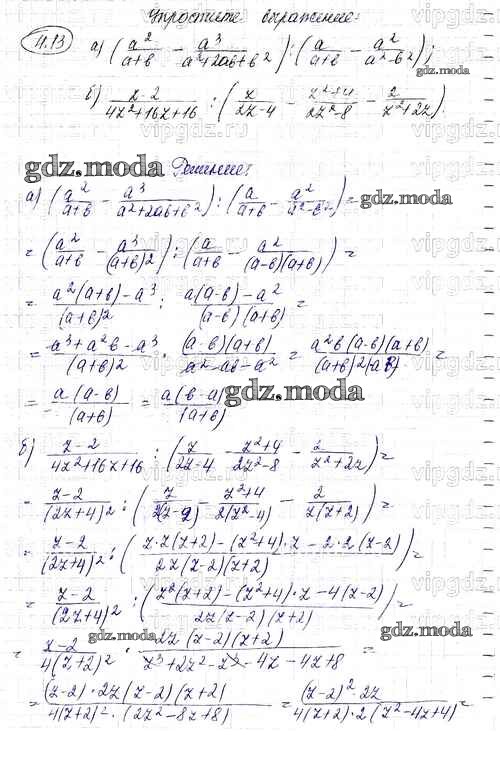 Упростите выражение:
4.13 а) (a²/(a+b) - a³/(a²+2ab+b²)) : (a/(a+b) - a²/(a²-b²));
gdz.moda
б) (z-2)/(4z²+16z+16) : (z/(2z-4) - (z²+4)/(2z²-8) - 2/(z²+2z)).
gdz.moda Решение:
а) (a²/(a+b) - a³/(a²+2ab+b²)) : (a/(a+b) - a²/(a²-b²)) =
= (a²/(a+b) - a³/(a+b)²) : (a/(a+b) - a²/((a-b)(a+b))) =
= (a²(a+b)-a³)/(a+b)² : (a(a-b)-a²)/((a-b)(a+b)) =
= (a³+a²b-a³)/(a+b)² · ((a-b)(a+b))/(a²-ab-a²) = (a²b(a-b)(a+b))/((a+b)²(ab)) =
= (a(a-b))/(a+b) = (a(b-a))/(a+b)
gdz.moda
б) (z-2)/(4z²+16z+16) : (z/(2z-4) - (z²+4)/(2z²-8) - 2/(z²+2z)) =
= (z-2)/(2z+4)² : (z/(2(z-2)) - (z²+4)/(2(z²-4)) - 2/(z(z+2))) =
= (z-2)/(2z+4)² : ((z·z(z+2)-(z²+4)·z-2·2(z-2))/(2z(z-2)(z+2))) =
= (z-2)/(2z+4)² : ((z²(z+2)-(z²+4)·z-4(z-2))/(2z(z-2)(z+2))) =
gdz.moda
= (z-2)/(4(z+2)²) · (2z(z-2)(z+2))/(z³+2z²-z³-4z-4z+8) =
= ((z-2)·2z(z-2)(z+2))/(4(z+2)²·(2z²-8z+8)) = ((z-2)²·2z)/(4(z+2)·2(z²-4z+4)) =
vipgdz